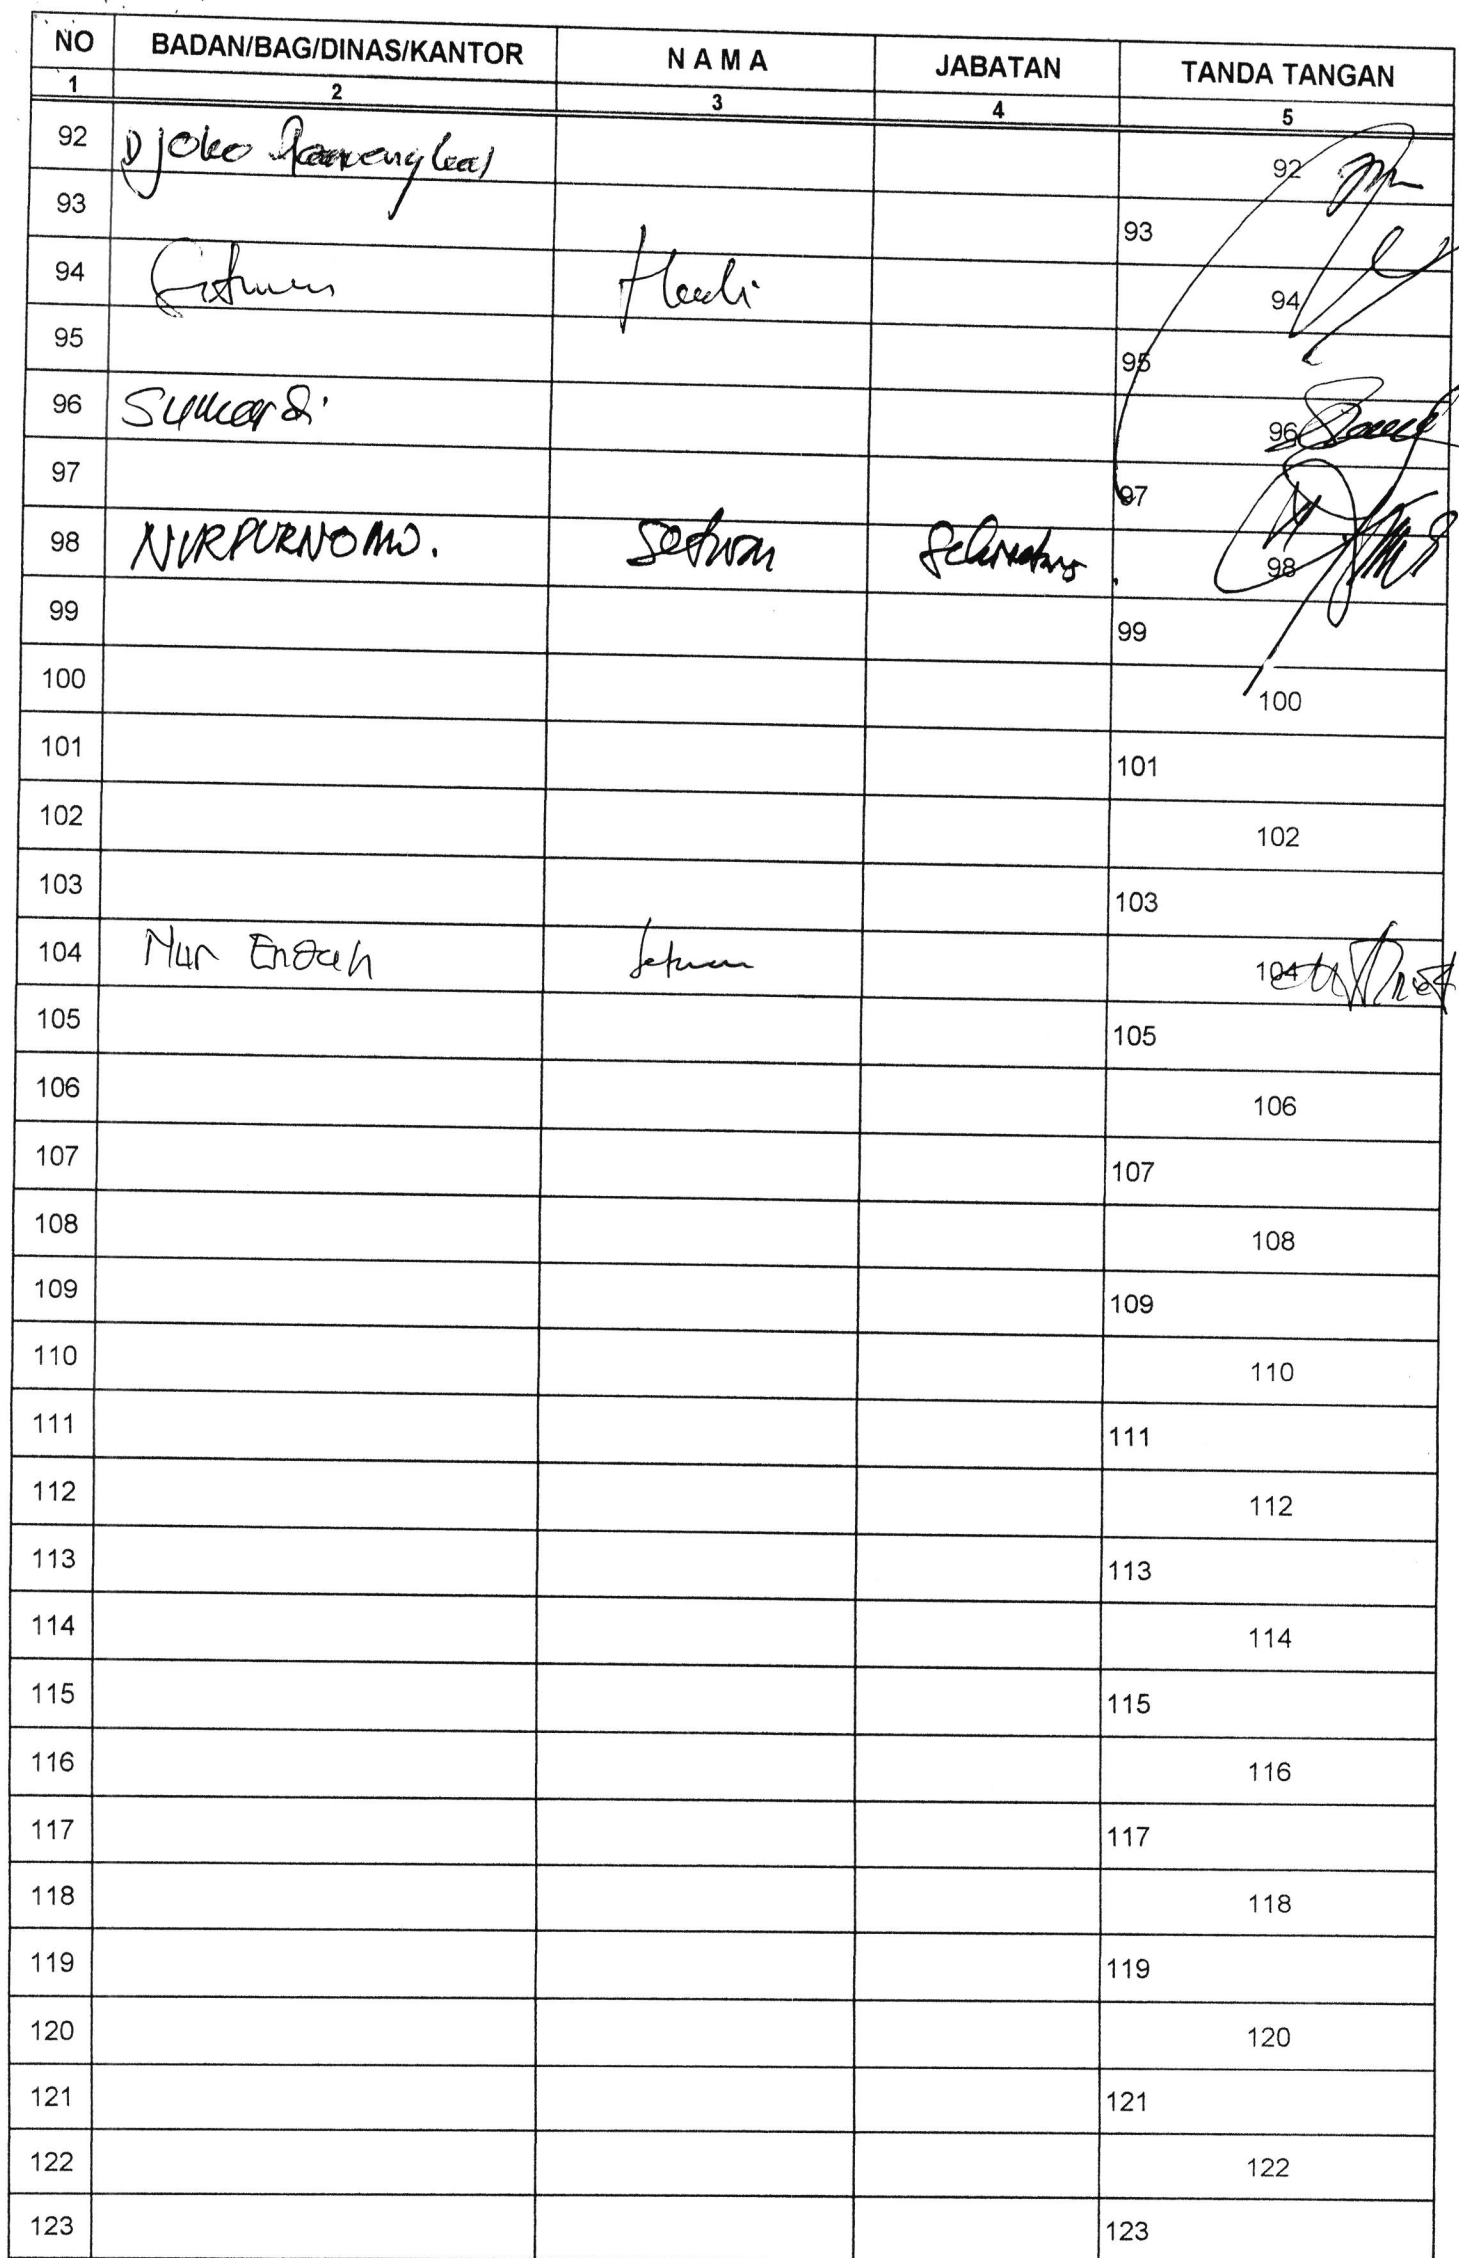 NO BADAN/BAG/DINAS/KANTOR N A M A JABATAN TANDA TANGAN
1 2 3 4 5
92 Djoko 92
93 93
94 Hadi 94
95 95
96 Sumardi 96
97 97
98 NURPURNOMO. Setwan 98
99 99
100 100
101 101
102 102
103 103
104 Nur Endah Setwan 104
105 105
106 106
107 107
108 108
109 109
110 110
111 111
112 112
113 113
114 114
115 115
116 116
117 117
118 118
119 119
120 120
121 121
122 122
123 123